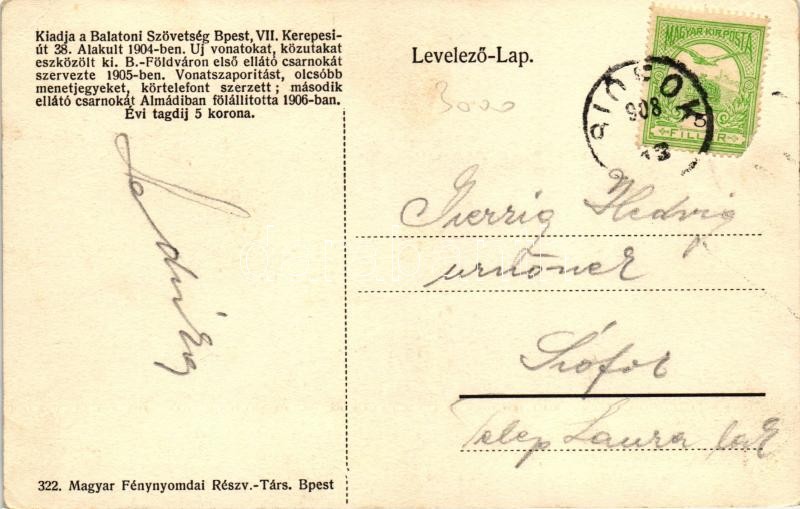 Kiadja a Balatoni Szövetség Bpest, VII. Kerepesi-
út 38. Alakult 1904-ben. Uj vonatokat, közutakat
eszközölt ki. B.-Földváron első ellátó csarnokát
szervezte 1905-ben. Vonatszaporitást, olcsóbb
menetjegyeket, körtelefont szerzett; második
ellátó csarnokát Almádiban fölállitotta 1906-ban.
Évi tagdij 5 korona.
Levelező-Lap.
MAGYAR·KIR·POSTA
5
FILLÉR
908
3000
Hedvig
urnőnek
Siófok
Telep Laura lak
322. Magyar Fénynyomdai Részv.-Társ. Bpest